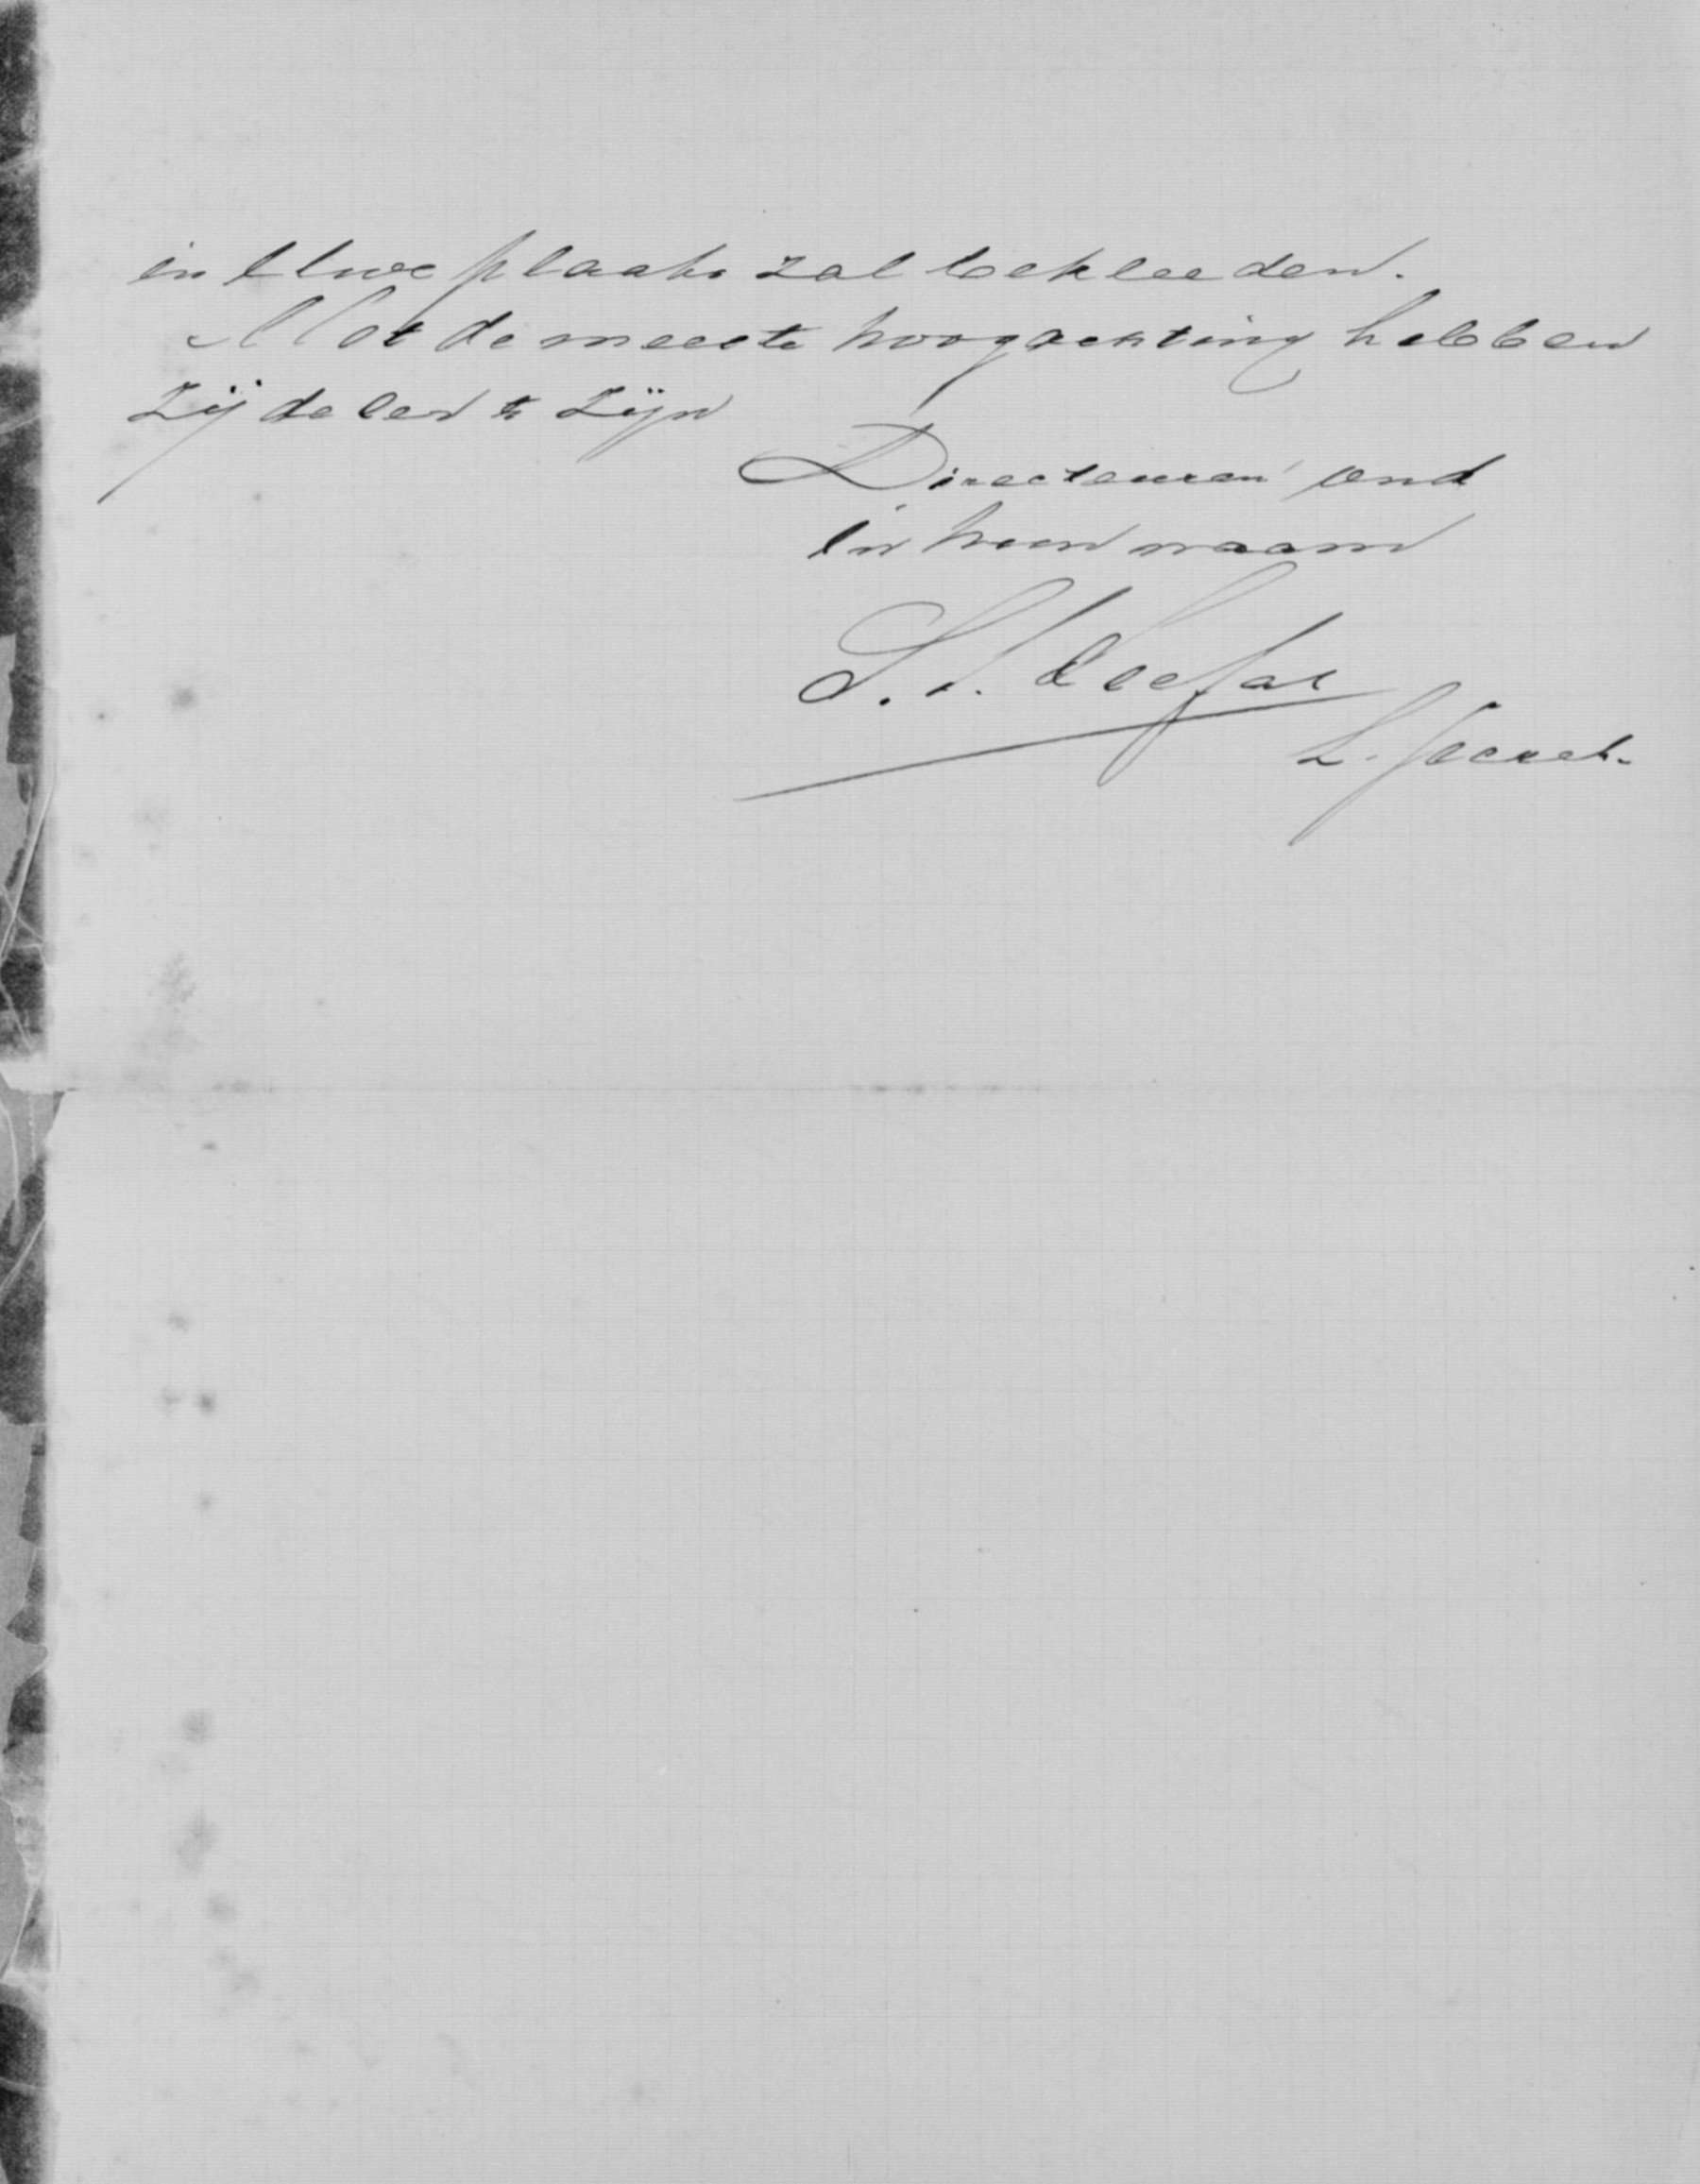 in Uwe plaats zal bekleeden.
Met de meeste hoogachting hebben
zij de eer te zijn
Directeuren vnd
in hun naam
S. I.
L. Secret.